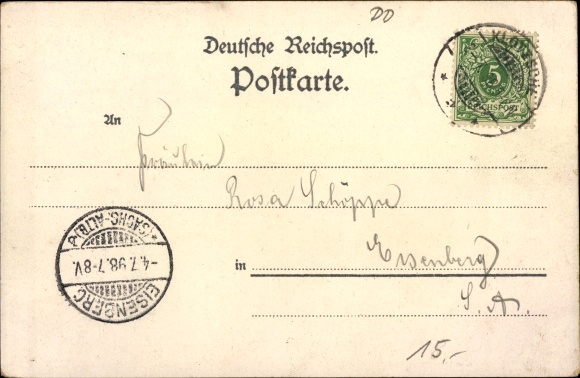 DD
Deutsche Reichspost.
Postkarte.
5
REICHSPOST
An
Fräulein
Rosa Schöppe
in Eisenberg
S. A.
EISENBERG
-4.7.98.7-8V.
*(SACHS.-ALTB.)*
15,-